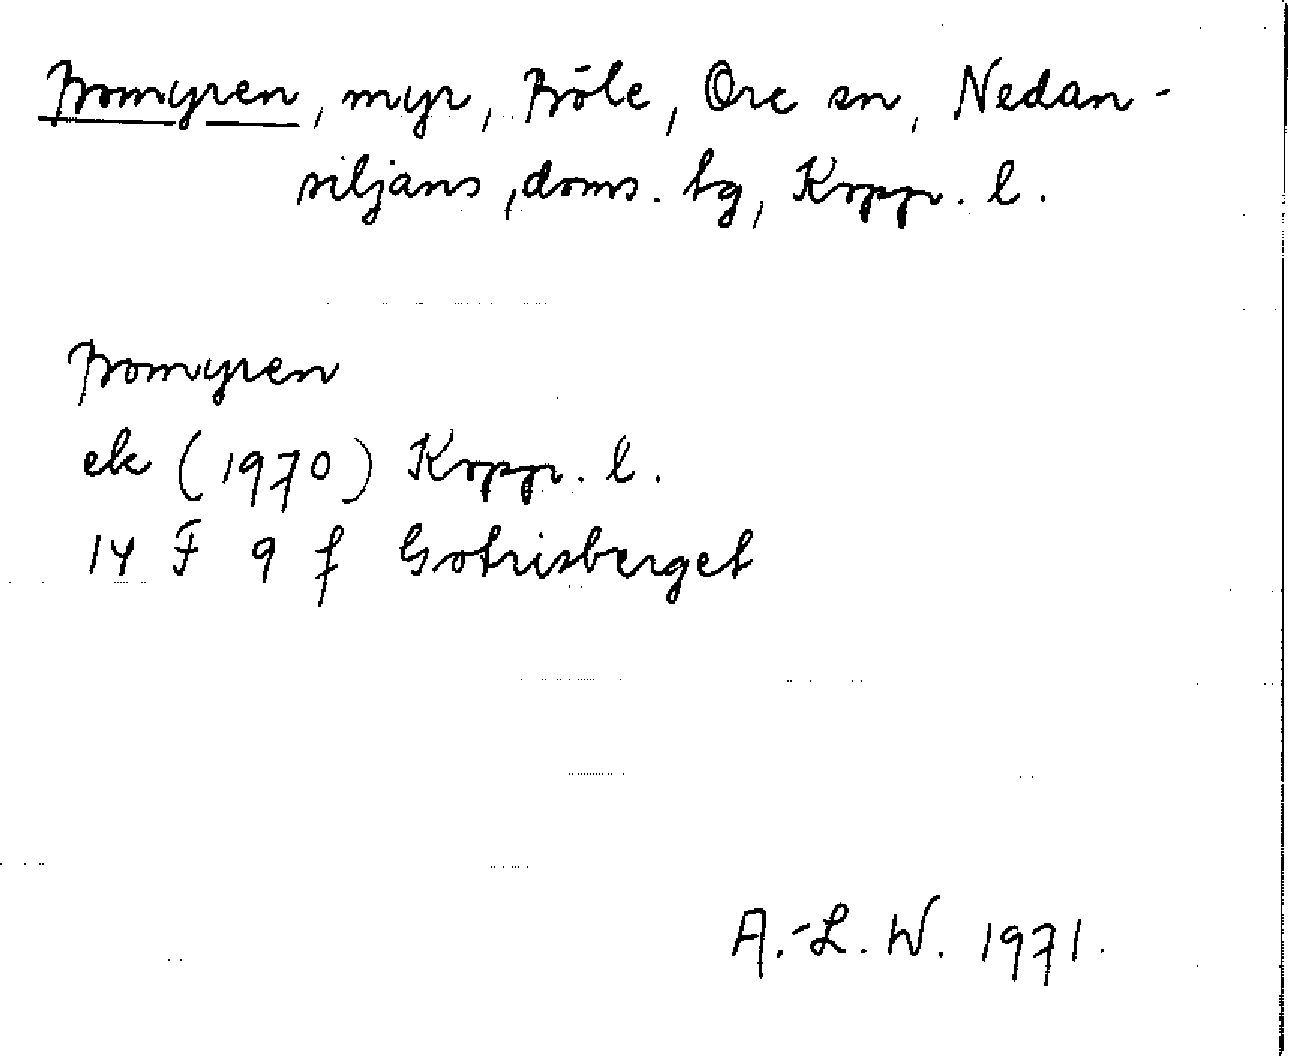 Bomyren, myr, Böle, Ore sn, Nedan-
siljans, doms. tg, Kopp. l.
Bomyren
ek (1970) Kopp. l.
14 F 9 f Gotrisberget
A.-L. W. 1971.